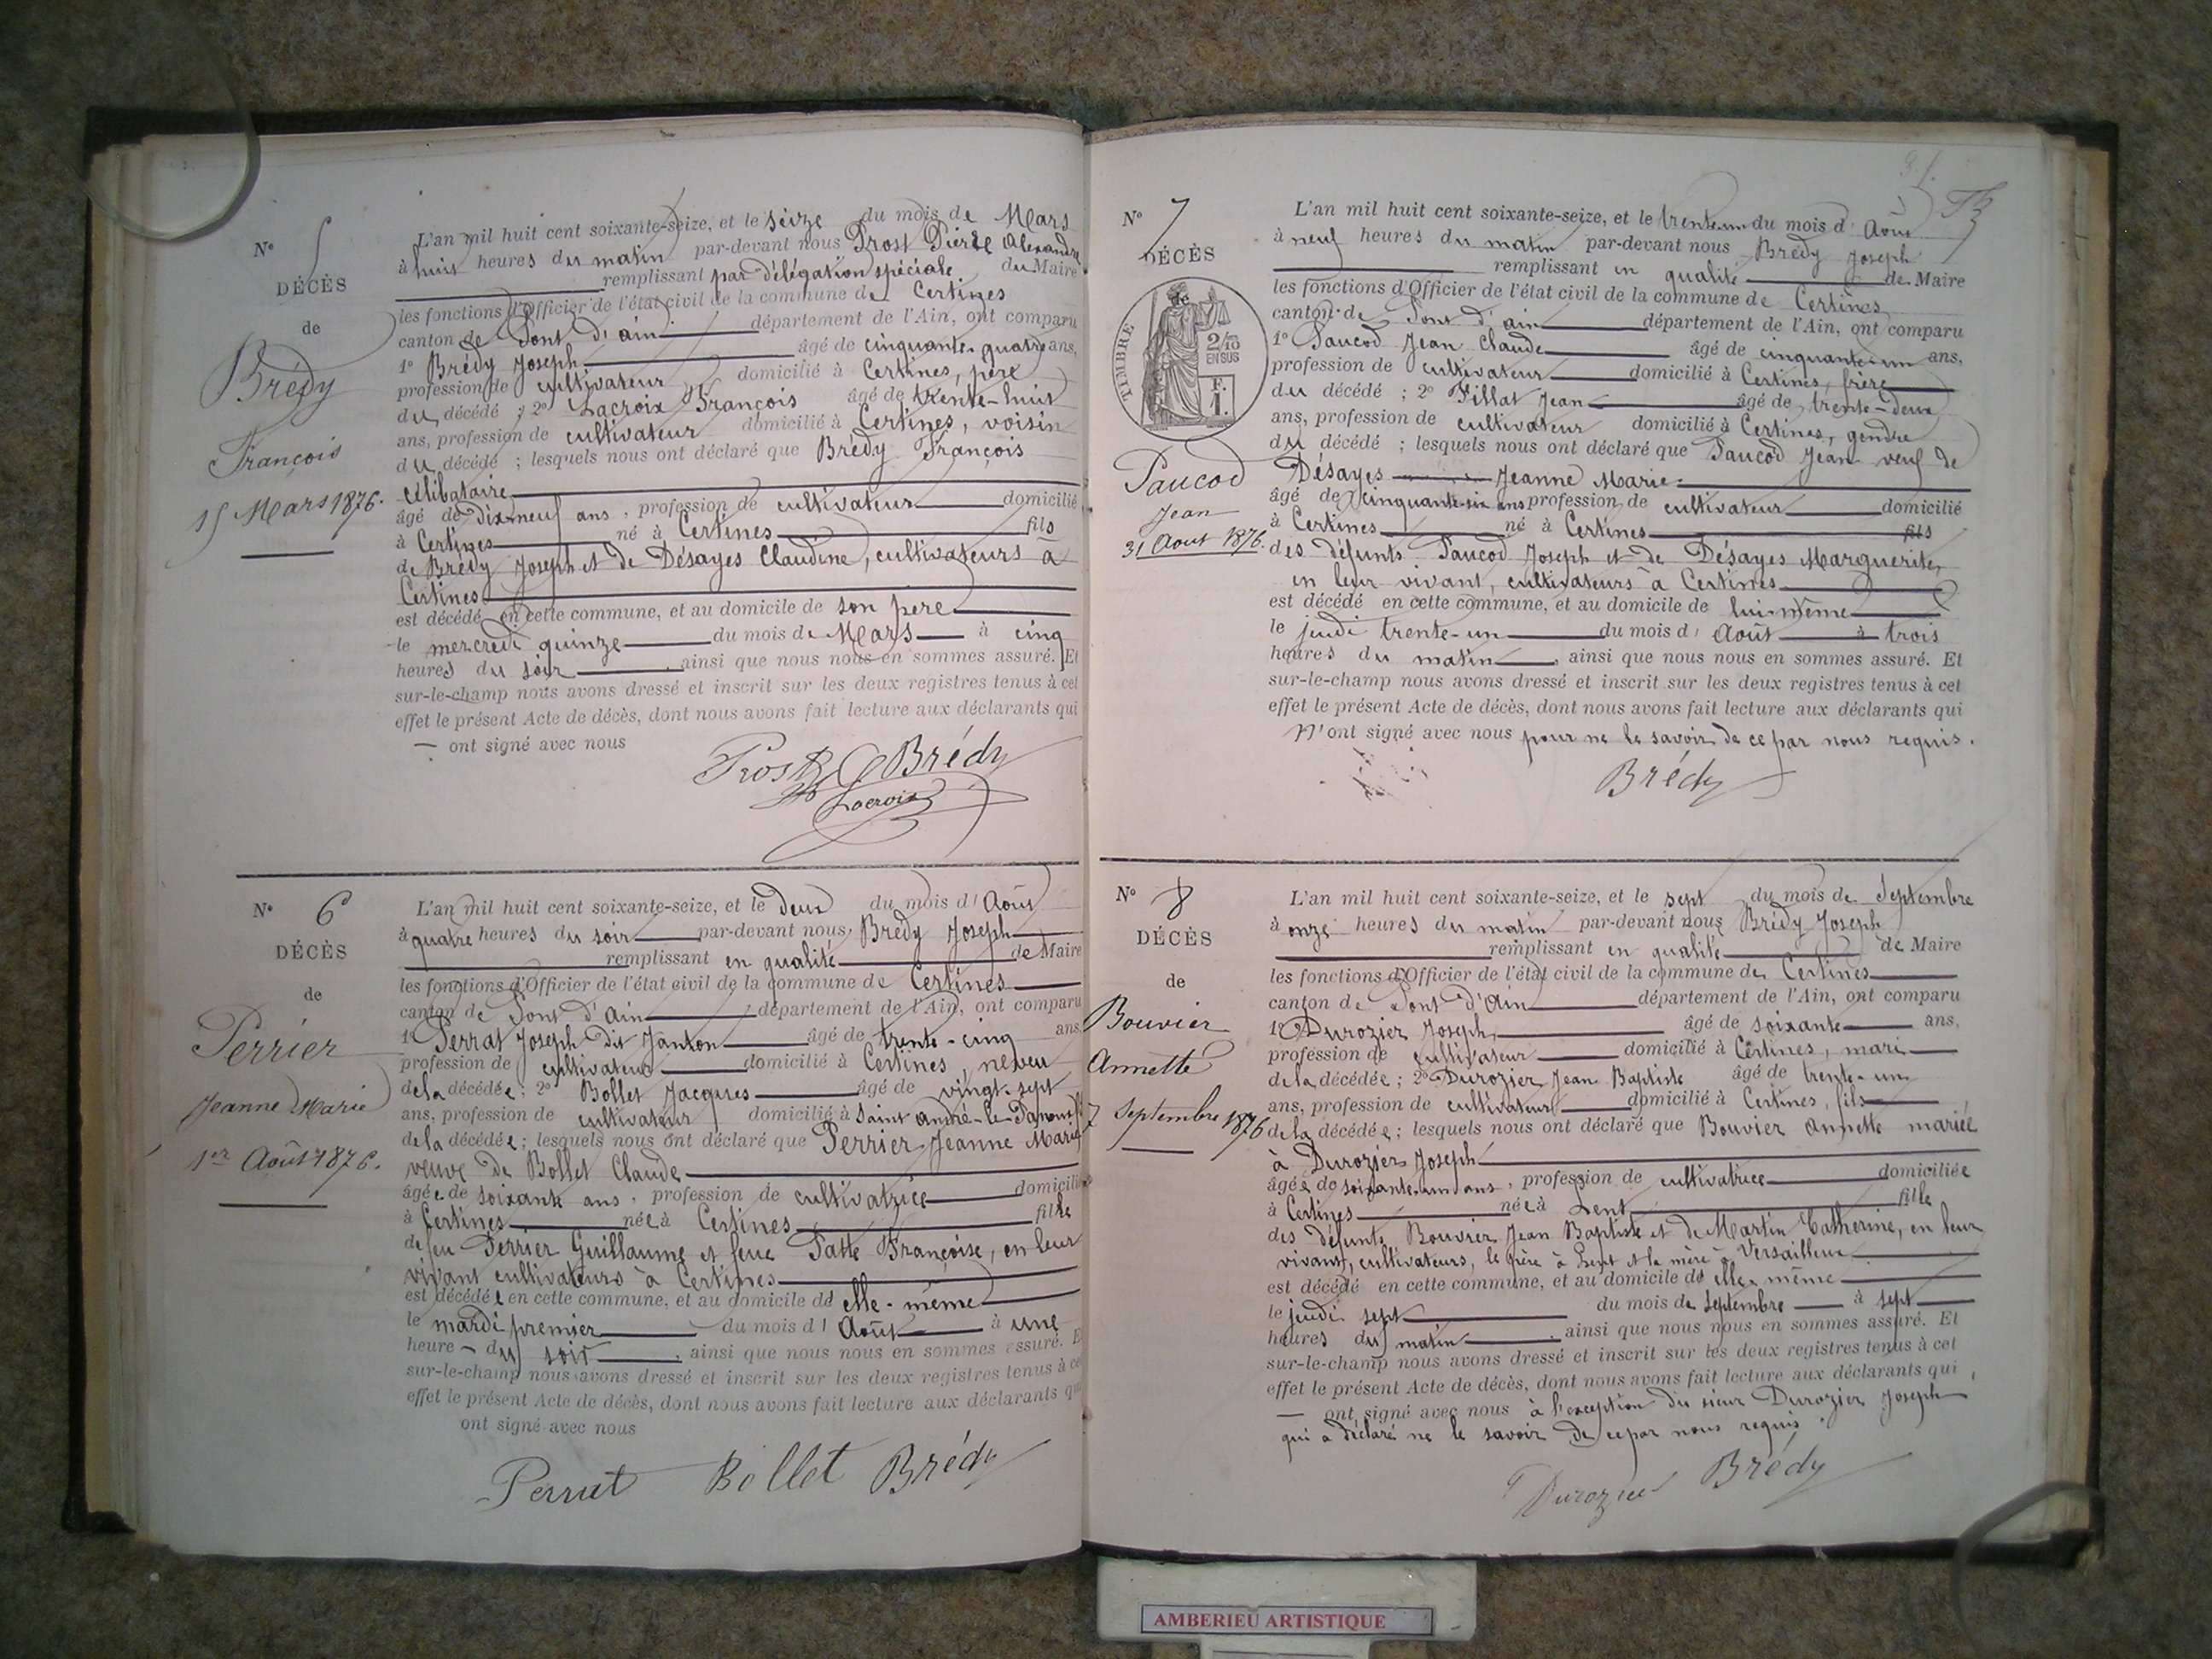 N° 5
DÉCÈS
de
Brédy
François
15 Mars 1876.
L'an mil huit cent soixante-seize, et le seize du mois de Mars
à huit heures du matin par-devant nous Prost Pierre Alexandre
remplissant par délégation spéciale du Maire
les fonctions d'Officier de l'état civil de la commune de Certines
canton de Pont d'ain département de l'Ain, ont comparu
1° Brédy Joseph âgé de cinquante-quatre ans,
profession de cultivateur domicilié à Certines, père
du décédé ; 2° Lacroix François âgé de trente-huit
ans, profession de cultivateur domicilié à Certines, voisin
du décédé ; lesquels nous ont déclaré que Brédy François
célibataire
âgé de dix-neuf ans, profession de cultivateur domicilié
à Certines né à Certines fils
de Brédy Joseph et de Désayes Claudine, cultivateurs à
Certines
est décédé en cette commune, et au domicile de son père
le mercredi quinze du mois de Mars à cinq
heures du soir, ainsi que nous nous en sommes assuré. Et
sur-le-champ nous avons dressé et inscrit sur les deux registres tenus à cet
effet le présent Acte de décès, dont nous avons fait lecture aux déclarants qui
— ont signé avec nous
Prost Brédy
Lacroix
N° 6
DÉCÈS
de
Perrier
Jeanne Marie
1er Août 1876.
L'an mil huit cent soixante-seize, et le deux du mois d'Août
à quatre heures du soir par-devant nous, Brédy Joseph
remplissant en qualité de Maire
les fonctions d'Officier de l'état civil de la commune de Certines
canton de Pont d'Ain département de l'Ain, ont comparu
1° Perrat Joseph dit Janton âgé de trente-cinq ans
profession de cultivateur domicilié à Certines, neveu
de la décédée ; 2° Bollet Jacques âgé de vingt-sept
ans, profession de cultivateur domicilié à Saint André-le-Panoux
de la décédée ; lesquels nous ont déclaré que Perrier Jeanne Marie
veuve de Bollet Claude
âgée de soixante ans, profession de cultivatrice domicilié
à Certines née à Certines fille
de feu Perrier Guillaume et feue Patte Françoise, en leur
vivant cultivateurs à Certines
est décédée en cette commune, et au domicile de elle-même
le mardi premier du mois d'Août à une
heure du soir, ainsi que nous nous en sommes assuré. E
sur-le-champ nous avons dressé et inscrit sur les deux registres tenus à ce
effet le présent Acte de décès, dont nous avons fait lecture aux déclarants qu
ont signé avec nous
Perrat Bollet Brédy
N° 7
DÉCÈS
TIMBRE
2/10
EN SUS
F.
1.
Paucod
Jean
31 Aout 1876.
L'an mil huit cent soixante-seize, et le trente-un du mois d'Août
à neuf heures du matin par-devant nous Brédy Joseph
remplissant en qualité de Maire
les fonctions d'Officier de l'état civil de la commune de Certines
canton de Pont d'ain département de l'Ain, ont comparu
1° Paucod Jean Claude âgé de cinquante-un ans,
profession de cultivateur domicilié à Certines, frère
du décédé ; 2° Fillat Jean âgé de trente-deux
ans, profession de cultivateur domicilié à Certines, gendre
du décédé ; lesquels nous ont déclaré que Paucod Jean veuf de
Désayes Jeanne Marie
âgé de cinquante-six ans profession de cultivateur domicilié
à Certines né à Certines fils
des défunts Paucod Joseph et de Désayes Marguerite,
en leur vivant, cultivateurs à Certines
est décédé en cette commune, et au domicile de lui-même
le jeudi trente-un du mois d'Août à trois
heures du matin, ainsi que nous nous en sommes assuré. Et
sur-le-champ nous avons dressé et inscrit sur les deux registres tenus à cet
effet le présent Acte de décès, dont nous avons fait lecture aux déclarants qui
n'ont signé avec nous pour ne le savoir de ce par nous requis.
Brédy
N° 8
DÉCÈS
de
Bouvier
Annette
7 Septembre 1876
L'an mil huit cent soixante-seize, et le sept du mois de Septembre
à onze heures du matin par-devant nous Brédy Joseph
remplissant en qualité de Maire
les fonctions d'Officier de l'état civil de la commune de Certines
canton de Pont d'Ain département de l'Ain, ont comparu
1° Durozier Joseph, âgé de soixante ans,
profession de cultivateur domicilié à Certines, mari
de la décédée ; 2° Durozier Jean Baptiste âgé de trente-un
ans, profession de cultivateur domicilié à Certines, fils
de la décédée ; lesquels nous ont déclaré que Bouvier Annette mariée
à Durozier Joseph
âgée de soixante-un ans, profession de cultivatrice domiciliée
à Certines née à Lent fille
des défunts Bouvier Jean Baptiste et de Martin Catherine, en leur
vivant, cultivateurs, le père à Lent et la mère à Versailleux
est décédé en cette commune, et au domicile de elle-même
le jeudi sept du mois de Septembre à sept
heures du matin, ainsi que nous nous en sommes assuré. Et
sur-le-champ nous avons dressé et inscrit sur les deux registres tenus à cet
effet le présent Acte de décès, dont nous avons fait lecture aux déclarants qui
— ont signé avec nous à l'exception du sieur Durozier Joseph
qui a déclaré ne le savoir de ce par nous requis.
Durozier Brédy
AMBERIEU ARTISTIQUE